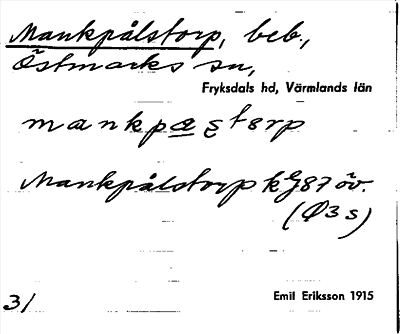 Mankpålstorp, beb.,
Östmarks sn,
Fryksdals hd, Värmlands län
mankpæstorp
Mankpålstorp kG87 öv.
(Ø3s)
31
Emil Eriksson 1915